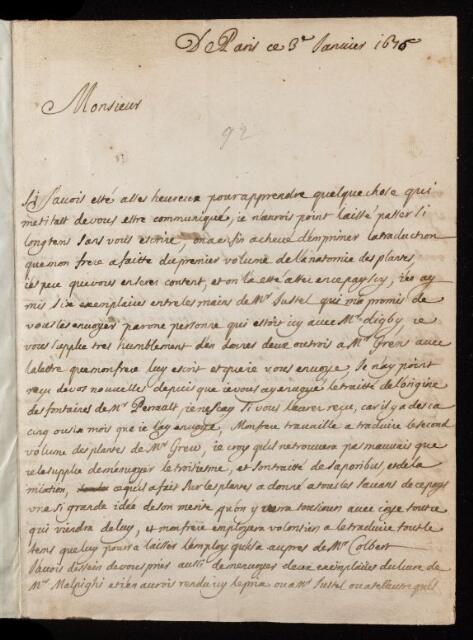 De Paris ce 3e Janvier 1676
Monsieur
92
Si J'avois esté asses heureux pour apprendre quelque chose qui
meritast de vous estre communiqué, ie n'aurois point laissé passer si
longtens sans vous escrire, on a enfin achevé d'imprimer la traduction
que mon frere a faitte du premier volume de l'anatomie des plantes,
i'espere que vous en serez content, et on l'a esté assez en ce pays icy, i'en ay
mis six exemplaires entre les mains de Mr Justel qui m'a promis de
vous les envoyer par une personne qui estoit icy avec Mr digby ie
vous supplie tres humblement d'en donner deux ou trois a Mr Grew avec
la lettre que mon frere luy escrit et que ie vous envoye. Je n'ay point
reçu de vos nouvelles depuis que ie vous ay envoyé le traitté de l'origine
des fontaines de Mr Perrault ie ne sçay si vous l'aurez reçu, car il y a desia
cinq ou six mois que ie l'ay envoyé, Mon frere travaille a traduire le second
volume des plantes de Mr Grew, ie croys qu'il ne trouvera pas mauvais que
ie le supplie de m'envoyer le troisiesme, et son traitté de saporibus, et de la
mixtion, ce qu'il a fait sur les plantes a donné a tous les savans de ce pays
une si grande idée de son merite qu'on y verra tousiours avec ioye tout ce
qui viendra de luy, et mon frere employera volontiers a le traduire tout le
tens que luy pourra laisser l'employ qu'il a aupres de Mr Colbert
J'avois dessein de vous prier aussi de m'envoyer deux exemplaires du livre de
Mr Malpighi et i'en aurois rendu icy le prix ou a Mr Justel ou a tel autre qu'il